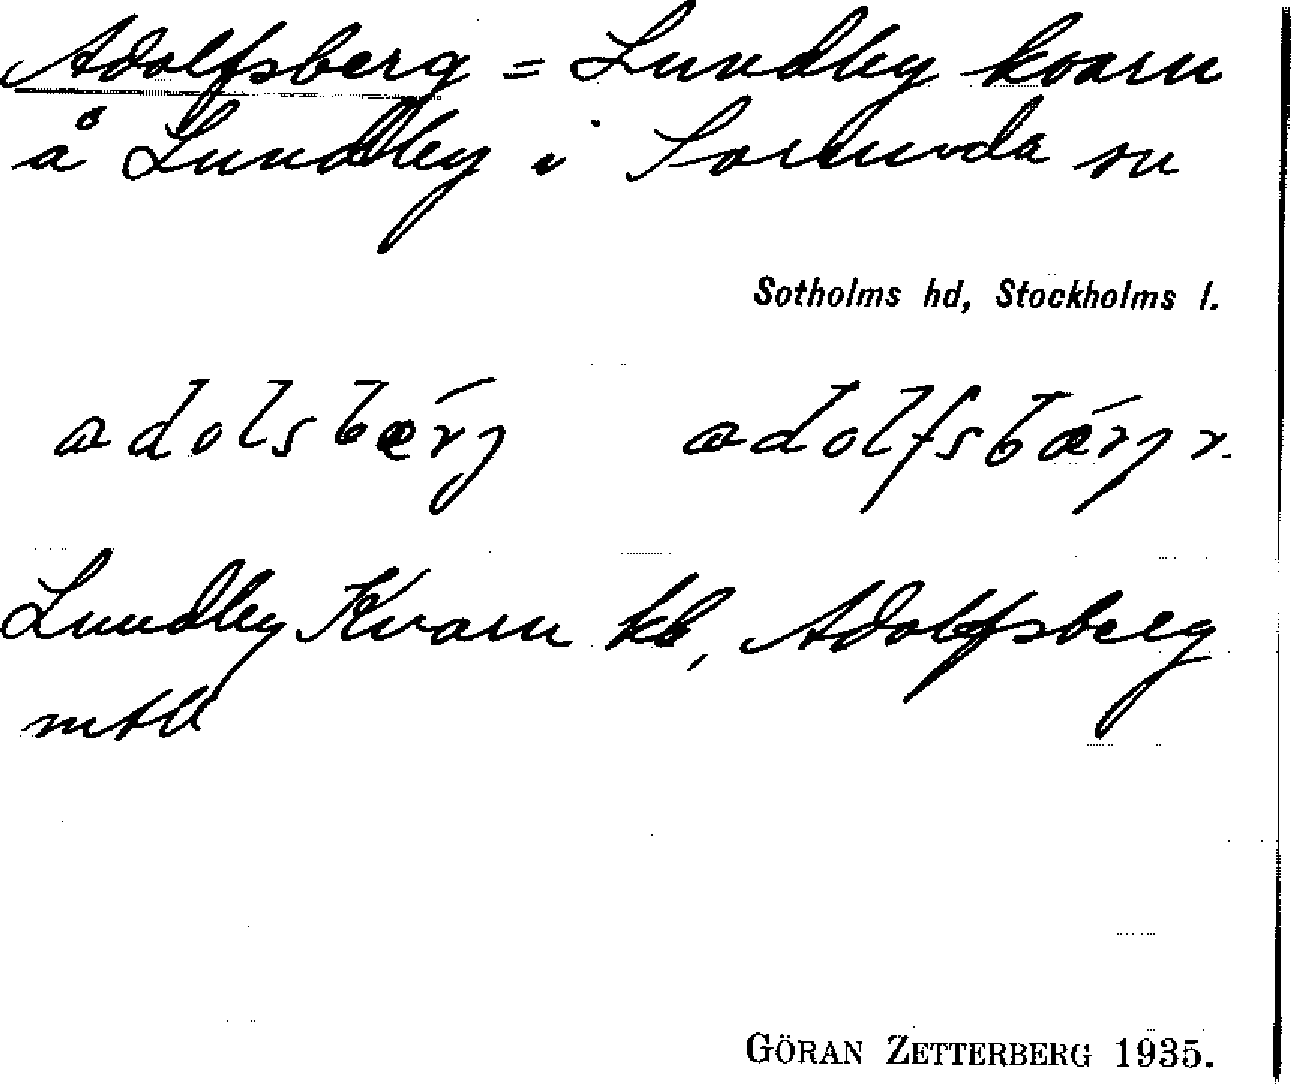 Adolfsberg = Lundby kvarn
å Lundby i Sorunda sn
Sotholms hd, Stockholms l.
adolsbærj adolfsbærj r.
Lundby Kvarn kb, Adolfsberg
mtll
GÖRAN ZETTERBERG 1935.